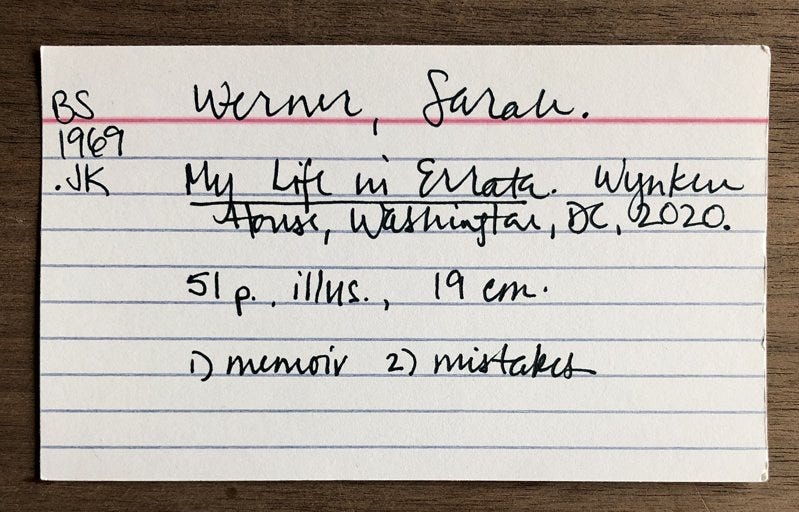 BS
1969
.JK
Werner, Sarah.
My Life in Errata. Wynken
House, Washington, DC, 2020.
51 p., illus., 19 cm.
1) memoir 2) mistakes